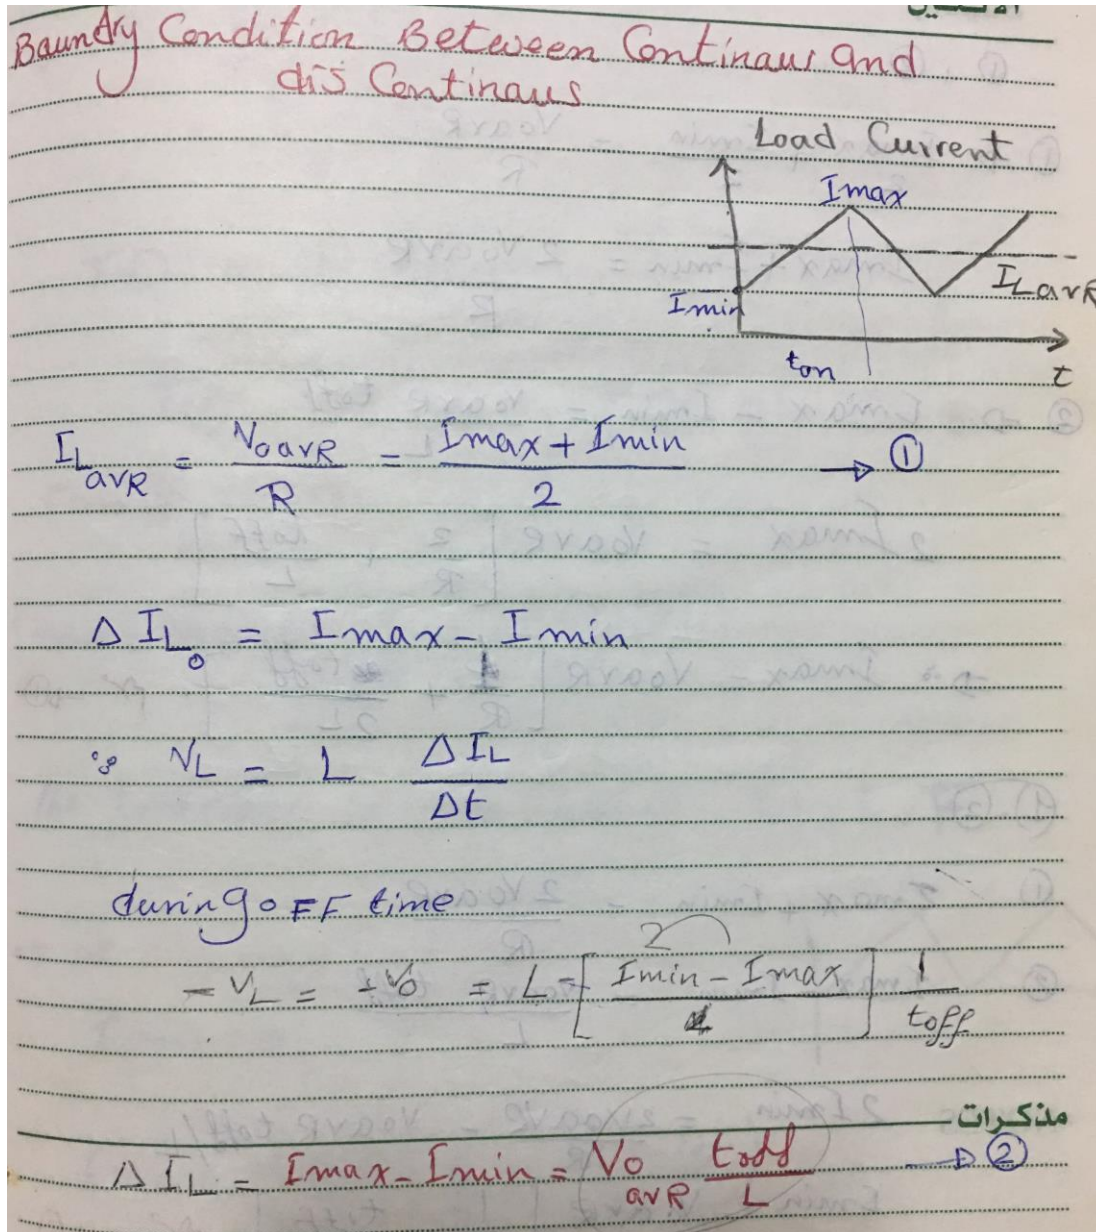 Baundry Condition Between Continaus and
dis Continaus
Load Current
Imax
I L avR
Imin
ton
t
I L avR = Vo avR / R = Imax + Imin / 2 → ①
Δ I Lo = Imax - Imin
∵ VL = L Δ IL / Δt
during OFF time
- VL = - Vo = L [ Imin - Imax ] 1 / toff
مذكرات
Δ IL = Imax - Imin = Vo avR toff / L → ②